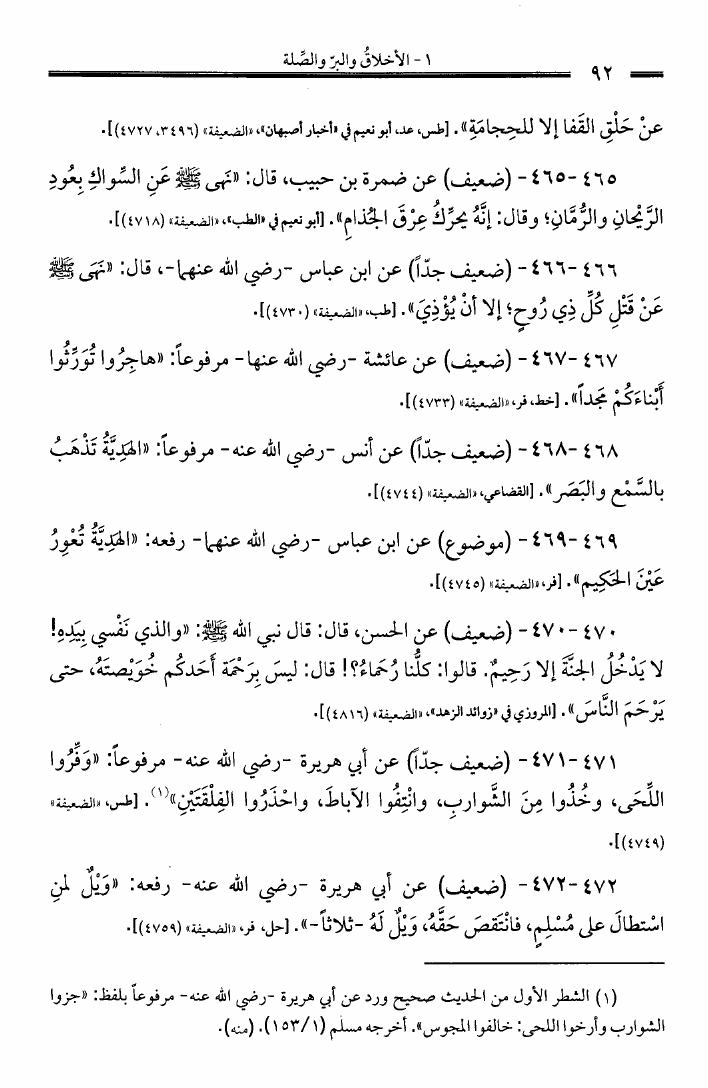 ١- الأخلاقُ والبرّ والصِّلة
٩٢
عنْ حَلْقِ القَفا إلا للحِجامَةِ». [طس، عد، أبو نعيم في «أخبار أصبهان»، «الضعيفة» (٣٤٩٦، ٤٧٢٧)].
٤٦٥-٤٦٥- (ضعيف) عن ضمرة بن حبيب، قال: «نَهى ﷺ عَنِ السِّواكِ بِعُودِ
الرَّيْحانِ والرُّمَّانِ؛ وقال: إنَّهُ يحرِّكُ عِرْقَ الجُذامِ». [أبو نعيم في «الطب»، «الضعيفة» (٤٧١٨)].
٤٦٦-٤٦٦- (ضعيف جدّاً) عن ابن عباس -رضي الله عنهما-، قال: «نَهَى ﷺ
عَنْ قَتْلِ كُلِّ ذِي رُوحٍ؛ إلا أنْ يُؤْذِيَ». [طب، «الضعيفة» (٤٧٣٠)].
٤٦٧-٤٦٧- (ضعيف) عن عائشة -رضي الله عنها- مرفوعاً: «هاجِرُوا تُوَرِّثُوا
أَبْناءَكُمْ مَجداً». [خط، فر، «الضعيفة» (٤٧٣٣)].
٤٦٨-٤٦٨- (ضعيف جدّاً) عن أنس -رضي الله عنه- مرفوعاً: «الهَدِيَّةُ تَذْهَبُ
بالسَّمْعِ والبَصَرِ». [القضاعي، «الضعيفة» (٤٧٤٤)].
٤٦٩-٤٦٩- (موضوع) عن ابن عباس -رضي الله عنهما- رفعه: «الهَدِيَّةُ تُعْوِرُ
عَيْنَ الحَكِيمِ». [فر، «الضعيفة» (٤٧٤٥)].
٤٧٠-٤٧٠- (ضعيف) عن الحسن، قال: قال نبي الله ﷺ: «والذي نَفْسي بِيَدِهِ!
لا يَدْخُلُ الجنَّةَ إلا رَحِيمٌ. قالوا: كلُّنا رُحَماءُ؟! قال: ليسَ بِرَحْمَة أَحَدكُم خُوَيْصتَهُ، حتى
يَرْحَمَ النَّاسَ». [المروزي في «زوائد الزهد»، «الضعيفة» (٤٨١٦)].
٤٧١-٤٧١- (ضعيف جدّاً) عن أبي هريرة -رضي الله عنه- مرفوعاً: «وَفِّرُوا
اللِّحَى، وخُذُوا مِنَ الشَّوارِبِ، وانْتِفُوا الآباطَ، واحْذَرُوا الفِلْقَتَيْنِ»(١). [طس، «الضعيفة»
(٤٧٤٩)].
٤٧٢-٤٧٢- (ضعيف) عن أبي هريرة -رضي الله عنه- رفعه: «وَيْلٌ لمنِ
اسْتطالَ على مُسْلِمٍ، فانْتَقصَ حَقَّهُ، وَيْلٌ لَهُ -ثلاثاً-». [حل، فر، «الضعيفة» (٤٧٥٩)].
(١) الشطر الأول من الحديث صحيح ورد عن أبي هريرة -رضي الله عنه- مرفوعاً بلفظ: «جزوا
الشوارب وأرخوا اللحى: خالفوا المجوس». أخرجه مسلم (١٥٣/١). (منه).